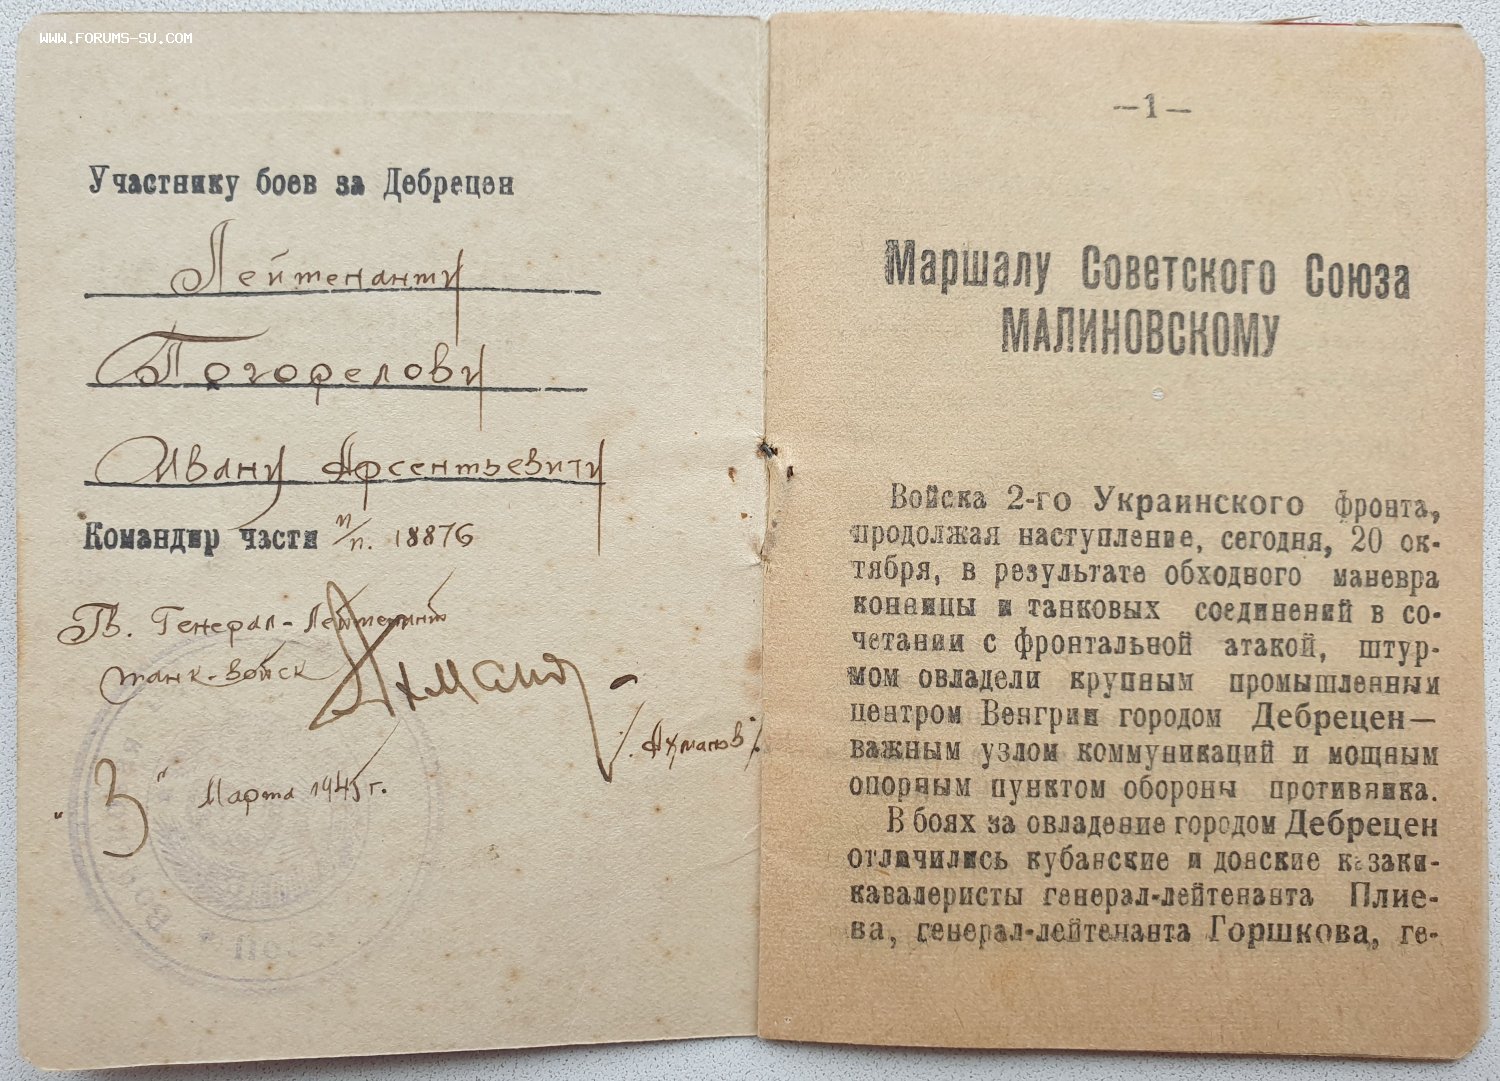 WWW.FORUMS-SU.COM
Участнику боев за Дебрецен
Лейтенанту
Погорелову
Ивану Арсентьевичу
Командир части п/п. 18876
Гв. Генерал-Лейтенант
танк-войск
/. Ахманов /.
"3" Марта 1945 г.
—1—
Маршалу Советского Союза
МАЛИНОВСКОМУ
Войска 2-го Украинского фронта,
продолжая наступление, сегодня, 20 ок-
тября, в результате обходного маневра
конницы и танковых соединений в со-
четании с фронтальной атакой, штур-
мом овладели крупным промышленным
центром Венгрии городом Дебрецен—
важным узлом коммуникаций и мощным
опорным пунктом обороны противника.
В боях за овладение городом Дебрецен
отличились кубанские и донские казаки-
кавалеристы генерал-лейтенанта Плие-
ва, генерал-лейтенанта Горшкова, ге-